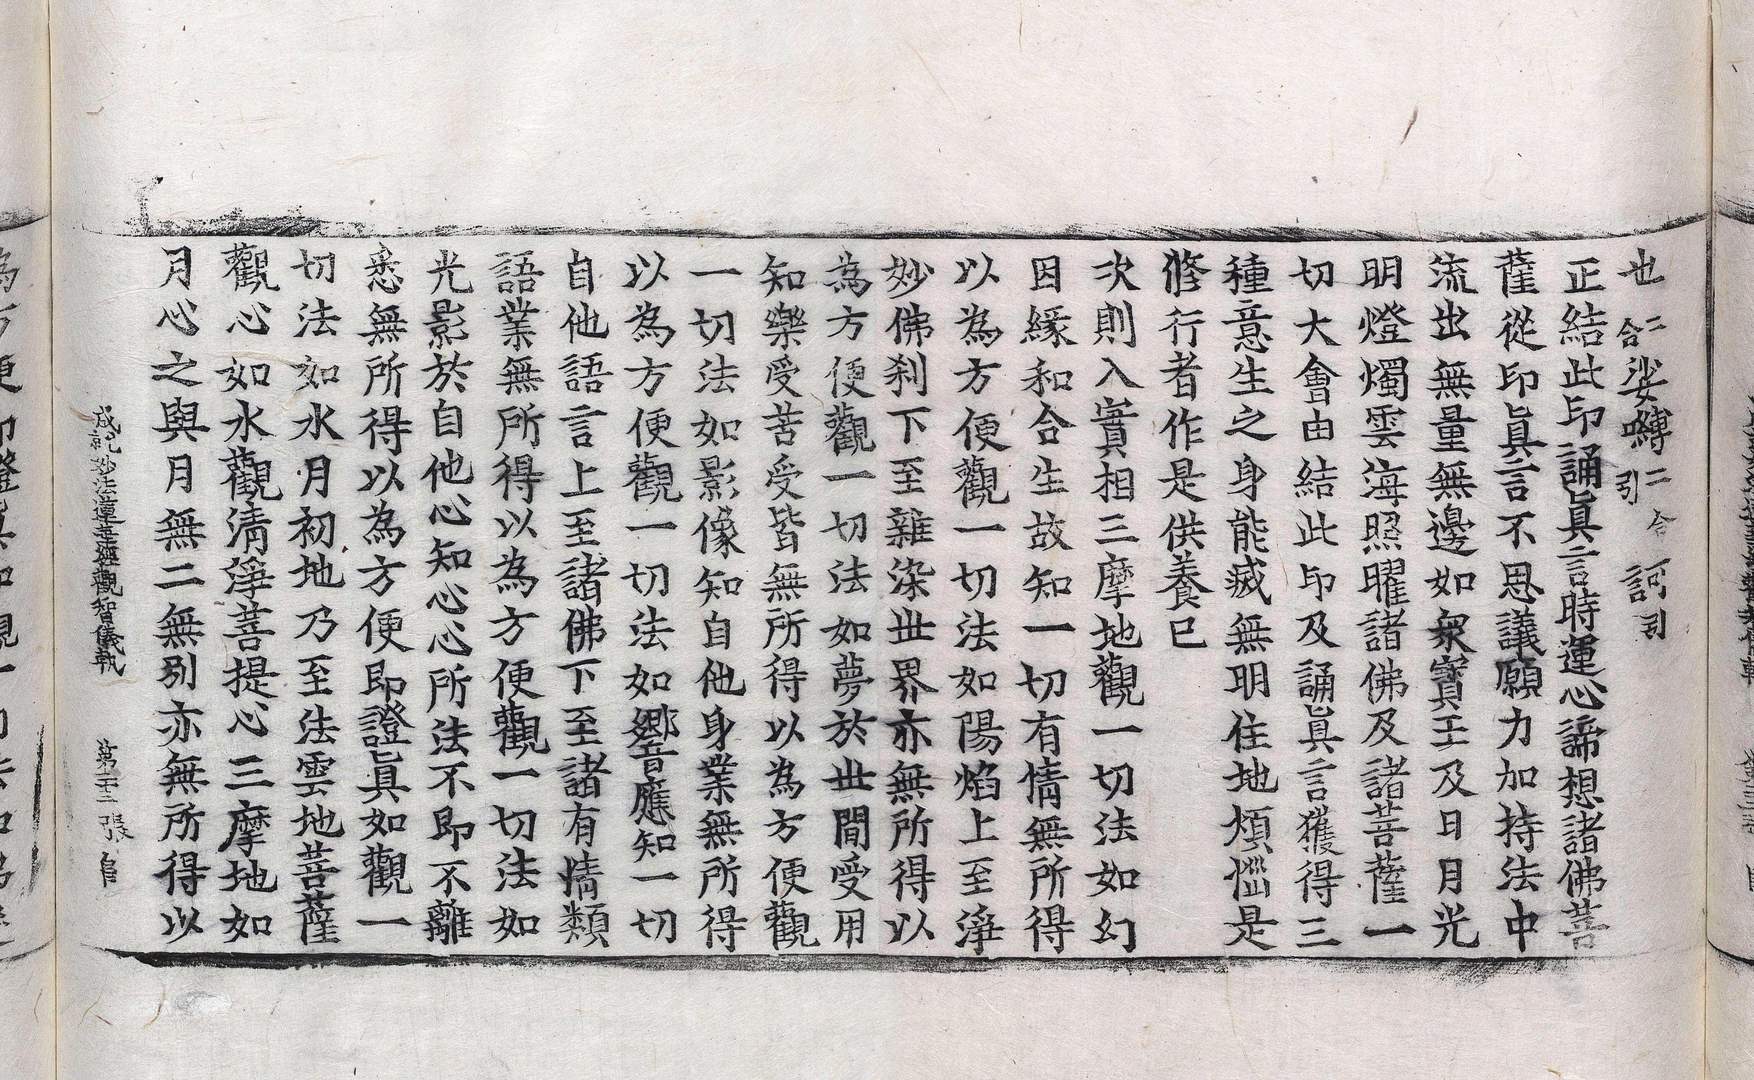 也二合娑嚩二合引訶引
正結此印誦眞言時運心諦想諸佛菩
薩從印眞言不思議願力加持法中
流出無量無邊如衆寶王及日月光
明燈燭雲海照曜諸佛及諸菩薩一
切大會由結此印及誦眞言獲得三
種意生之身能滅無明住地煩惱是
修行者作是供養已
次則入實相三摩地觀一切法如幻
因緣和合生故知一切有情無所得
以為方便觀一切法如陽焰上至淨
妙佛刹下至雜染世界亦無所得以
為方便觀一切法如夢於世間受用
知樂受苦受皆無所得以為方便觀
一切法如影像知自他身業無所得
以為方便觀一切法如響應知一切
自他語言上至諸佛下至諸有情類
語業無所得以為方便觀一切法如
光影於自他心知心心所法不即不離
悉無所得以為方便即證眞如觀一
切法如水月初地乃至法雲地菩薩
觀心如水觀清淨菩提心三摩地如
月心之與月無二無別亦無所得以
成就妙法蓮華經觀智儀軌 第二十二張